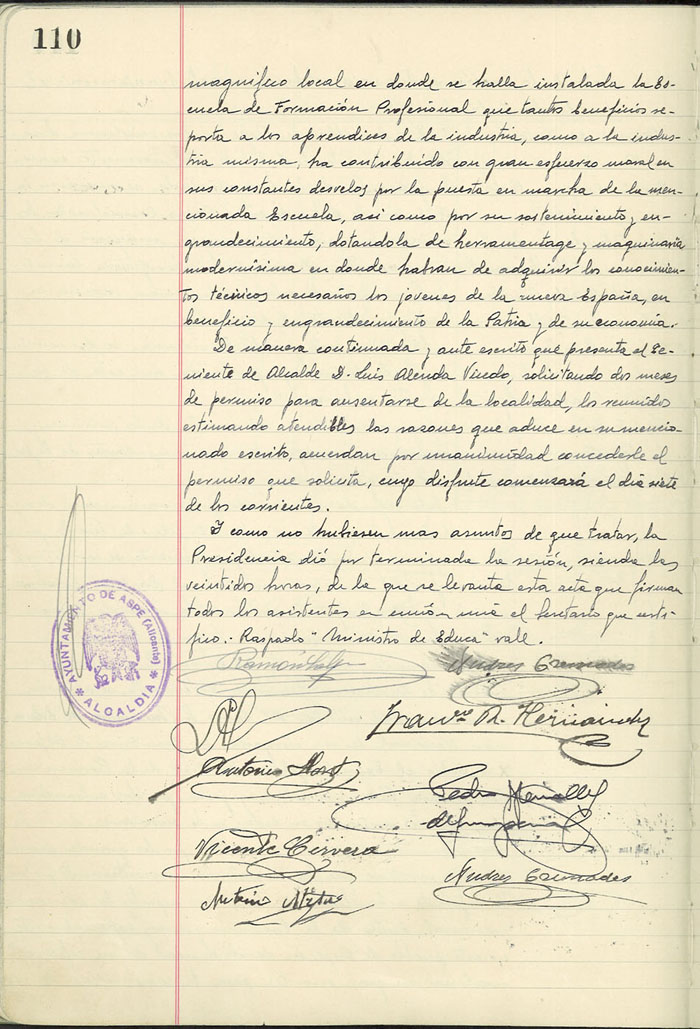 110
magnifico local en donde se halla instalada la Es-
cuela de Formación Profesional que tantos beneficios re-
porta a los aprendices de la industria, como a la indus-
tria misma, ha contribuido con gran esfuerzo moral en
sus constantes desvelos por la puesta en marcha de la men-
cionada Escuela, asi como por su sostenimiento y en-
grandecimiento, dotandola de herramentage y maquinaria
modernisima en donde habran de adquirir los conocimien-
tos técnicos necesarios los jovenes de la nueva España, en
beneficio y engrandecimiento de la Patria y de su economia.
De manera continuada y ante escrito que presenta el Te-
niente de Alcalde D. Luis Alenda Vicedo, solicitando dos meses
de permiso para ausentarse de la localidad, los reunidos
estimando atendibles las razones que aduce en su mencio-
nado escrito, acuerdan por unanimidad concederle el
permiso que solicita, cuyo disfrute comenzará el dia siete
de los corrientes.
Y como no hubiesen mas asuntos de que tratar, la
Presidencia dió por terminada la sesión, siendo las
veintidos horas, de la que se levanta esta acta que firman
todos los asistentes en union mia el Secretario que certi-
fico.- Raspado "Ministro de Educa" vale.
AYUNTAMIENTO DE ASPE (Alicante)
ALCALDIA
Ramón
Andres Cremades
Franco R. Hernández
Antonio
Pedro
Vicente Cervera
Andres Cremades
Antonio